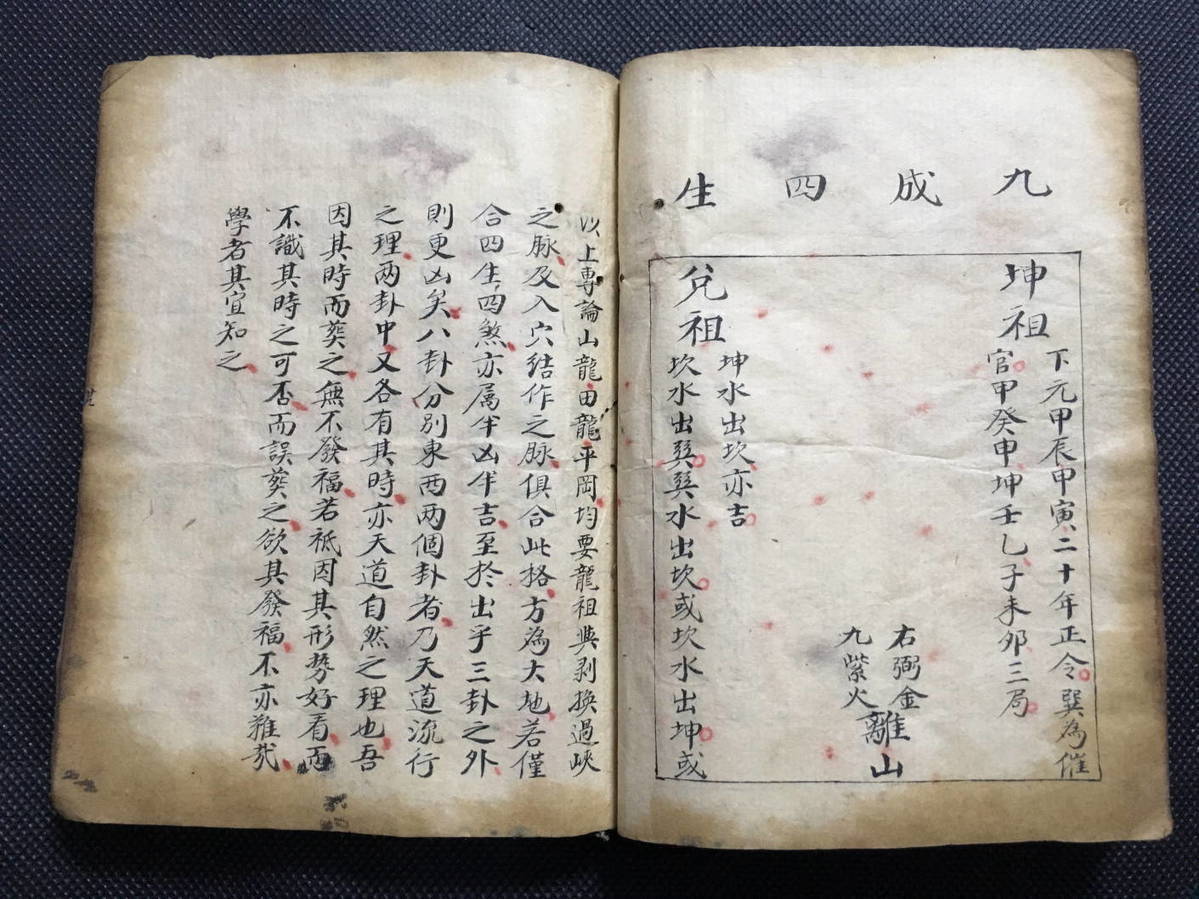 九成四生
坤祖
下元甲辰甲寅二十年正令巽為催
官甲癸申坤壬乙子未卯三局
右弼金
九紫火
離山
兌祖
坤水出坎亦吉
坎水出巽巽水出坎或坎水出坤或
以上專論山龍田龍平岡均要龍祖與剥換過峽
之脉及入穴結作之脉俱合此格方為大地若僅
合四生四煞亦属半凶半吉至於出乎三卦之外
則更凶矣八卦分別東西两個卦者乃天道流行
之理两卦中又各有其時亦天道自然之理也吾
因其時而葬之無不發福若祇因其形势好看而
不識其時之可否而誤葬之欲其發福不亦难哉
學者其宜知之